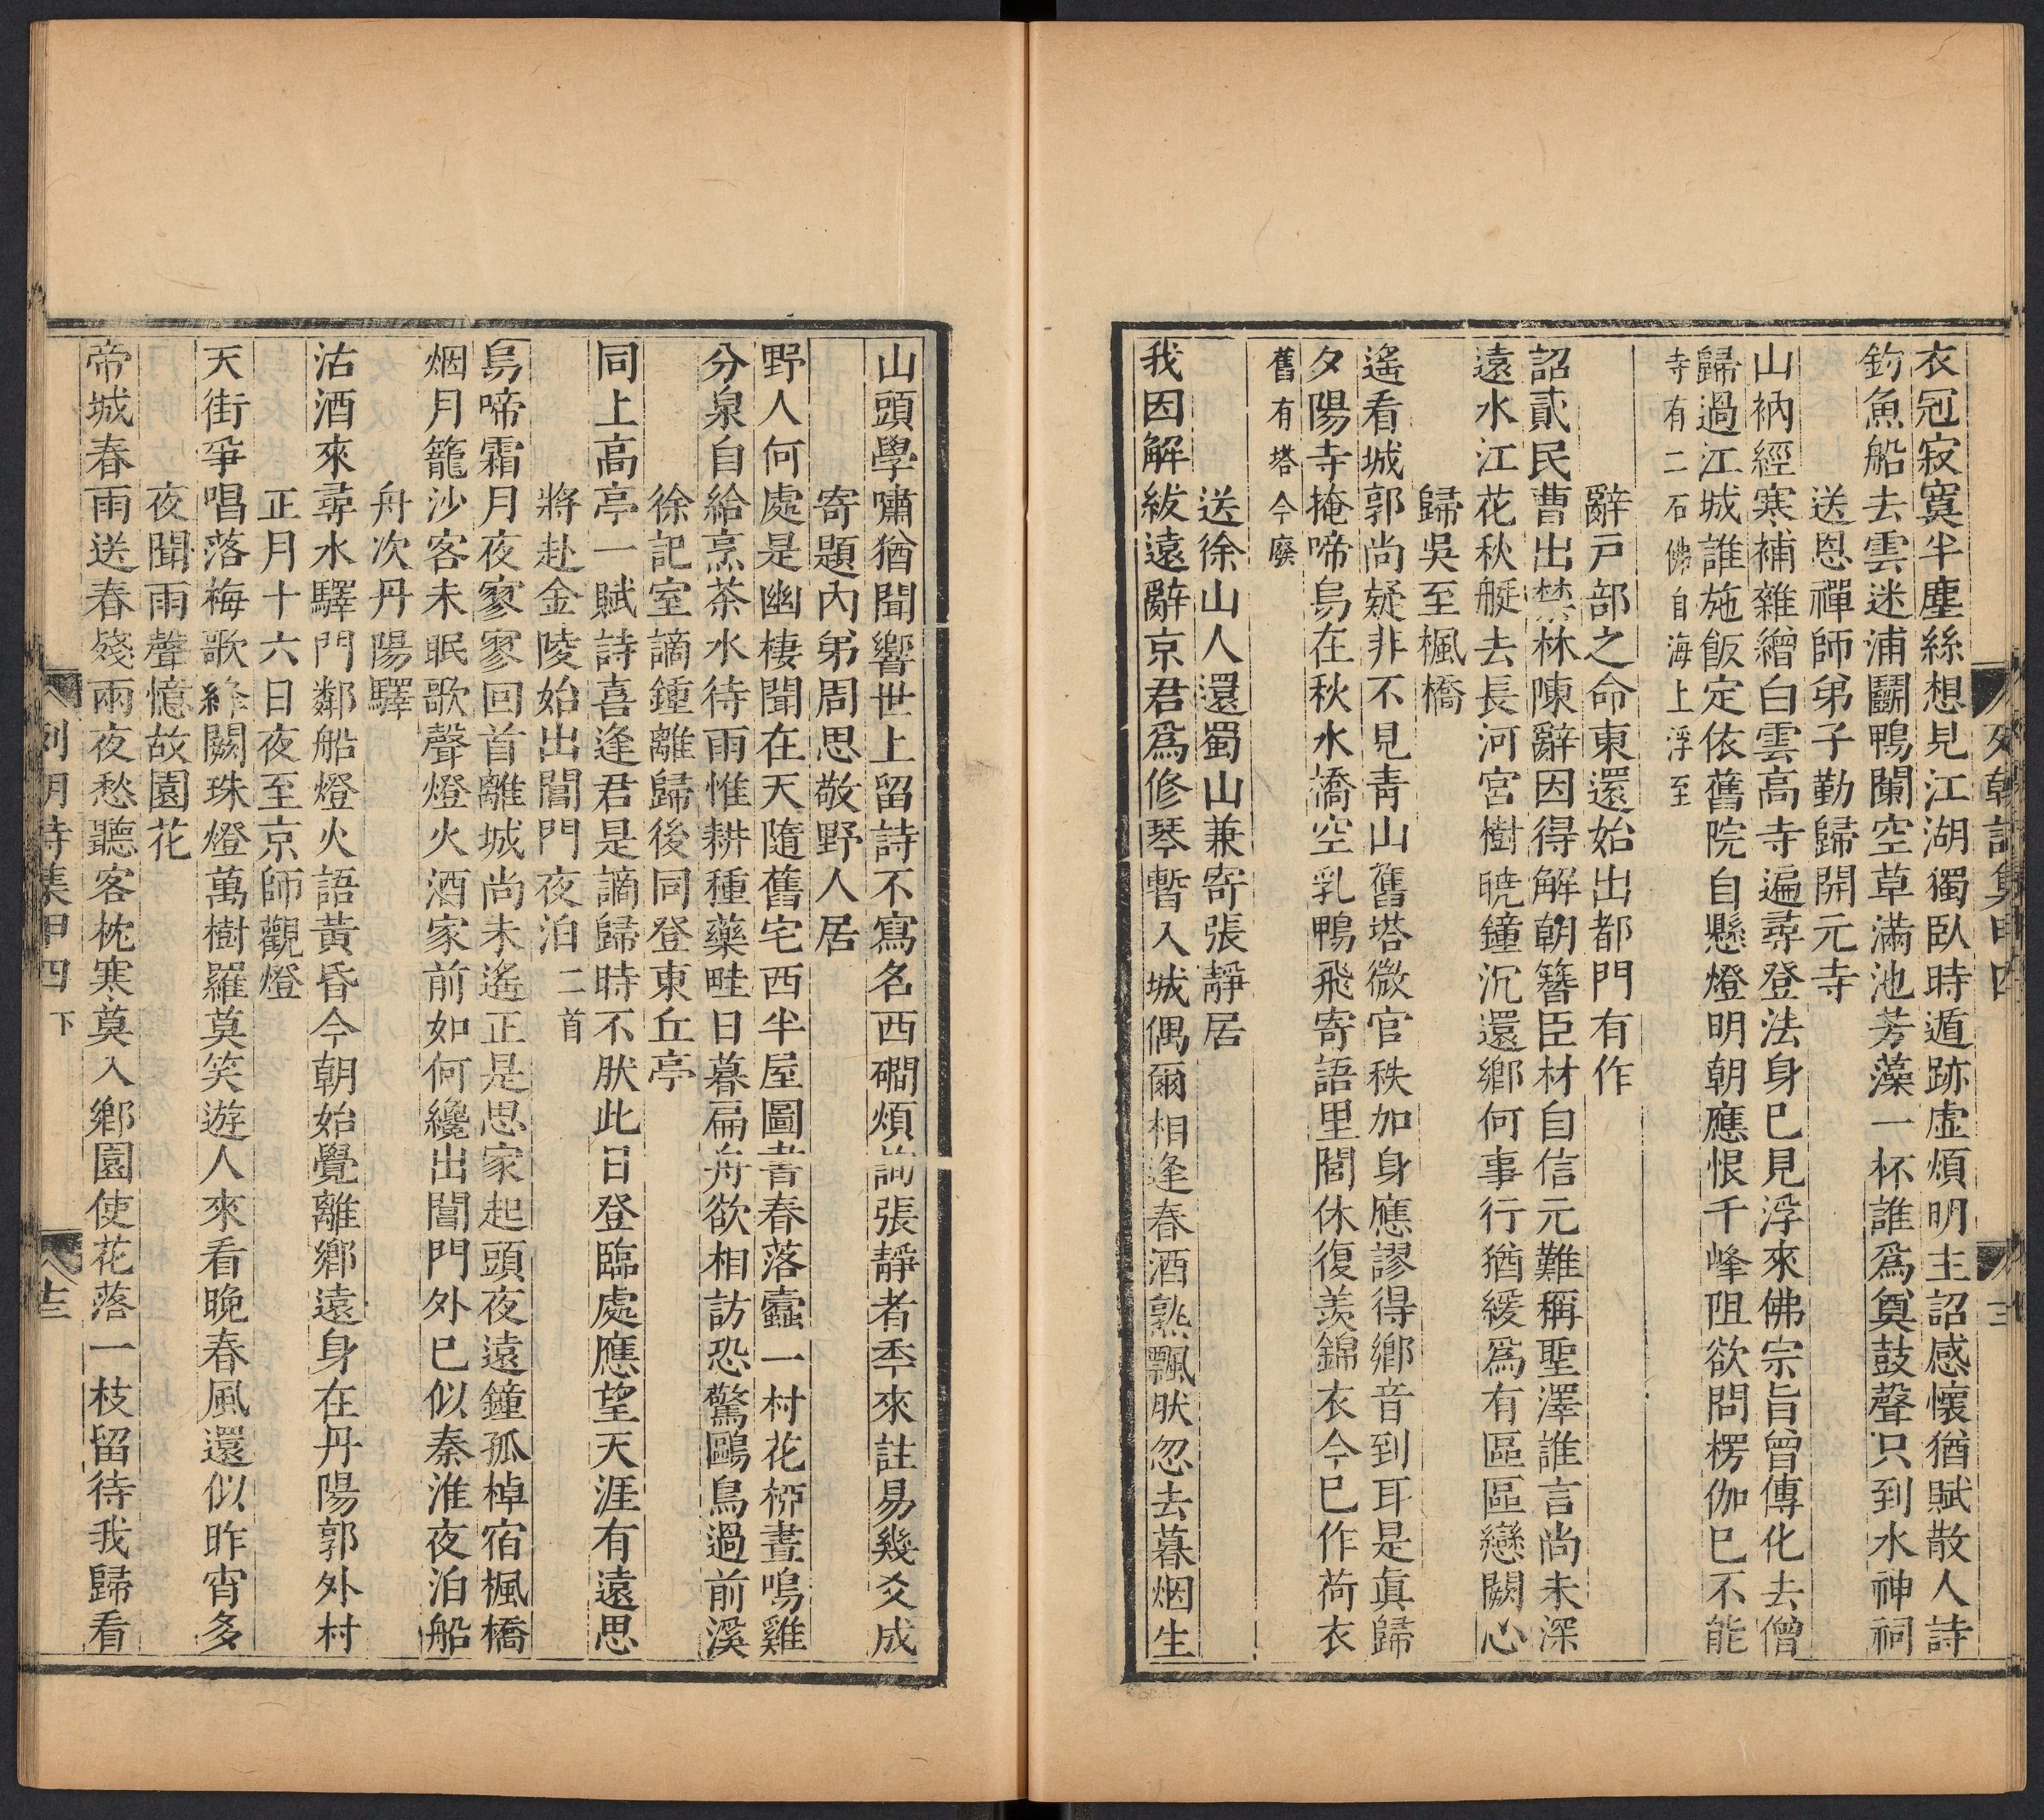 衣冠寂寞半塵絲想見江湖獨臥時遁跡虛煩明主詔感懷猶賦散人詩
釣魚船去雲迷浦鬭鴨闌空草滿池芳藻一杯誰爲奠鼓聲只到水神祠
送恩禪師弟子勤歸開元寺
山衲經寒補雜繒白雲高寺遍尋登法身已見浮來佛宗旨曾傳化去僧
歸過江城誰施飯定依舊院自懸燈明朝應恨千峰阻欲問楞伽已不能
寺有二石佛自海上浮至
辭戸部之命東還始出都門有作
詔貳民曹出禁林陳辭因得解朝簪臣材自信元難稱聖澤誰言尚未深
遠水江花秋艇去長河宮樹曉鐘沉還鄉何事行猶緩爲有區區戀闕心
歸吳至楓橋
遙看城郭尚疑非不見青山舊塔微官秩加身應謬得鄉音到耳是眞歸
夕陽寺掩啼烏在秋水橋空乳鴨飛寄語里閭休復羨錦衣今已作荷衣
舊有塔今廢
送徐山人還蜀山兼寄張靜居
我因解紱遠辭京君爲修琴暫入城偶爾相逢春酒熟飄肰忽去暮烟生
山頭學嘯猶聞響世上留詩不寫名西磵煩詢張靜者季來註易幾爻成
寄題內弟周思敬野人居
野人何處是幽棲聞在天隨舊宅西半屋圖書春落蠹一村花桺晝鳴雞
分泉自給烹茶水待雨惟耕種藥畦日暮扁舟欲相訪恐驚鷗鳥過前溪
徐記室謫鍾離歸後同登東丘亭
同上高亭一賦詩喜逢君是謫歸時不肰此日登臨處應望天涯有遠思
將赴金陵始出閶門夜泊二首
烏啼霜月夜寥寥回首離城尚未遙正是思家起頭夜遠鐘孤棹宿楓橋
烟月籠沙客未眠歌聲燈火酒家前如何纔出閶門外已似秦淮夜泊船
舟次丹陽驛
沽酒來尋水驛門鄰船燈火語黃昏今朝始覺離鄉遠身在丹陽郭外村
正月十六日夜至京師觀燈
天街爭唱落梅歌絳闕珠燈萬樹羅莫笑遊人來看晚春風還似昨宵多
夜聞雨聲憶故園花
帝城春雨送春殘雨夜愁聽客枕寒莫入鄉園使花落一枝留待我歸看
列朝詩集甲四下